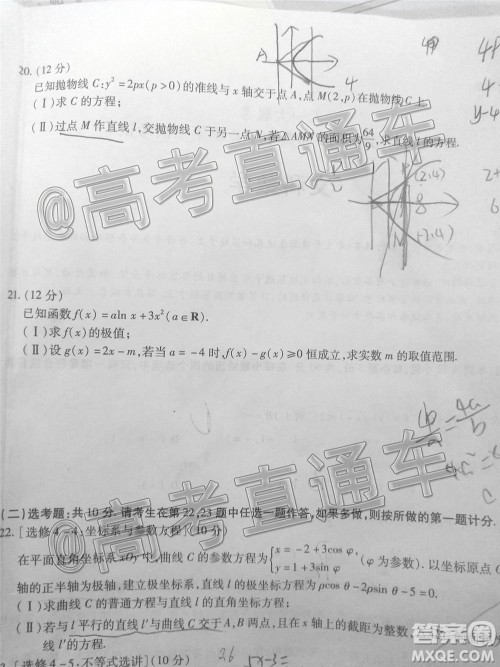 20. (12 分)
已知抛物线 C: y² = 2px(p > 0) 的准线与 x 轴交于点 A, 点 M(2, p) 在抛物线 C 上.
(Ⅰ) 求 C 的方程;
(Ⅱ) 过点 M 作直线 l, 交抛物线 C 于另一点 N, 若△AMN 的面积为 64/9, 求直线 l 的方程.
A
4
(2,4)
8
@高考直通车
21. (12 分)
已知函数 f(x) = aln x + 3x² (a ∈ R).
(Ⅰ) 求 f(x) 的极值;
(Ⅱ) 设 g(x) = 2x - m, 若当 a = -4 时, f(x) - g(x) ≥ 0 恒成立, 求实数 m 的取值范围.
@高考直通车
(二) 选考题: 共 10 分. 请考生在第 22, 23 题中任选一题作答, 如果多做, 则按所做的第一题计分.
22. [选修 4-4: 坐标系与参数方程] (10 分)
在平面直角坐标系 xOy 中, 曲线 C 的参数方程为 {x = -2 + 3cos φ, y = 1 + 3sin φ (φ 为参数). 以坐标原点 O
轴的正半轴为极轴, 建立极坐标系, 直线 l 的极坐标方程为 ρcos θ - 2ρsin θ - 5 = 0.
(Ⅰ) 求曲线 C 的普通方程与直线 l 的直角坐标方程;
(Ⅱ) 若与 l 平行的直线 l′ 与曲线 C 交于 A, B 两点, 且在 x 轴上的截距为整数,
线 l′ 的方程.
[选修 4-5: 不等式选讲] (10 分)
26
5x-3=
答案圈